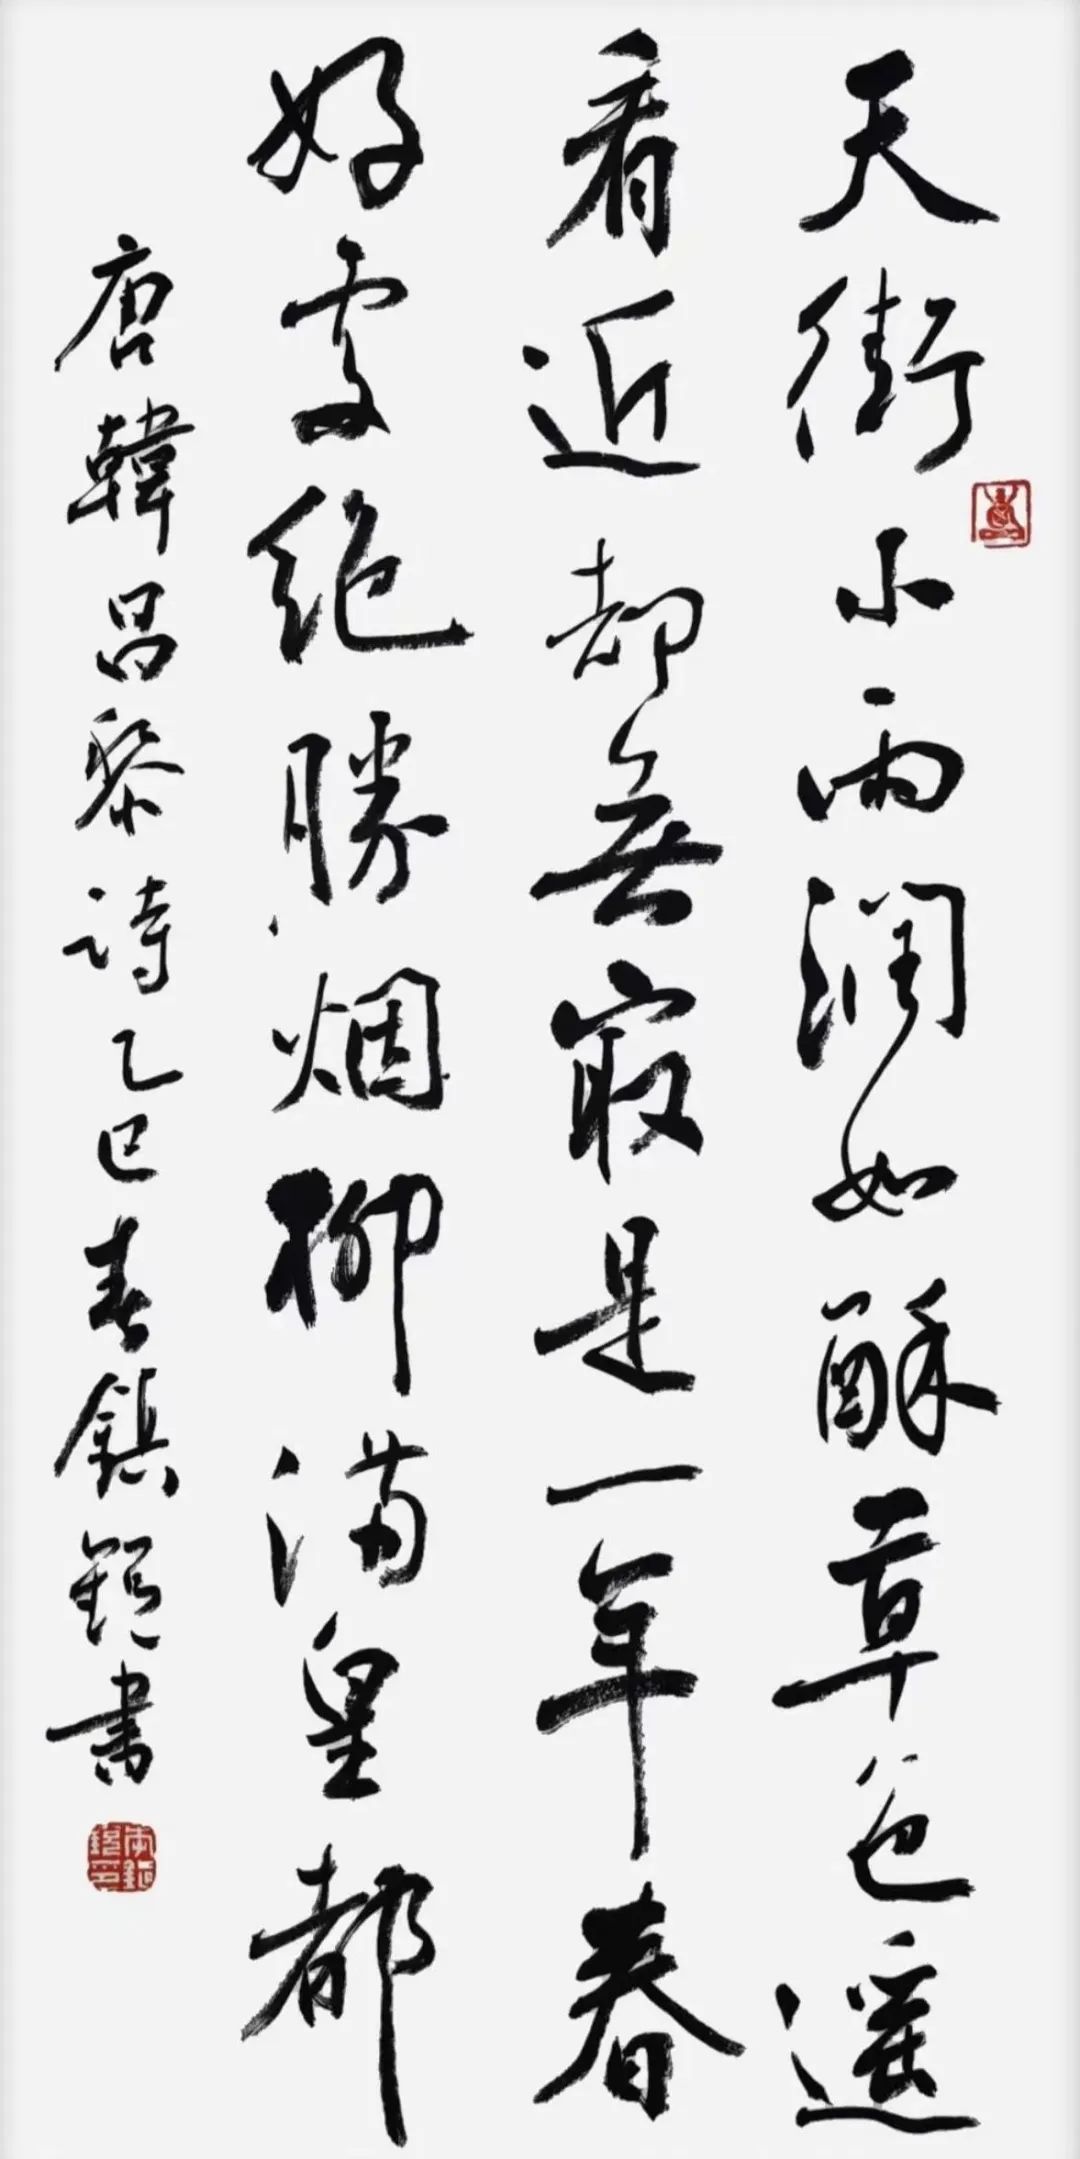 天街小雨润如酥草色遥
看近却無最是一年春
好处绝勝烟柳满皇都
唐韓昌黎詩乙巳春鎮鎧書